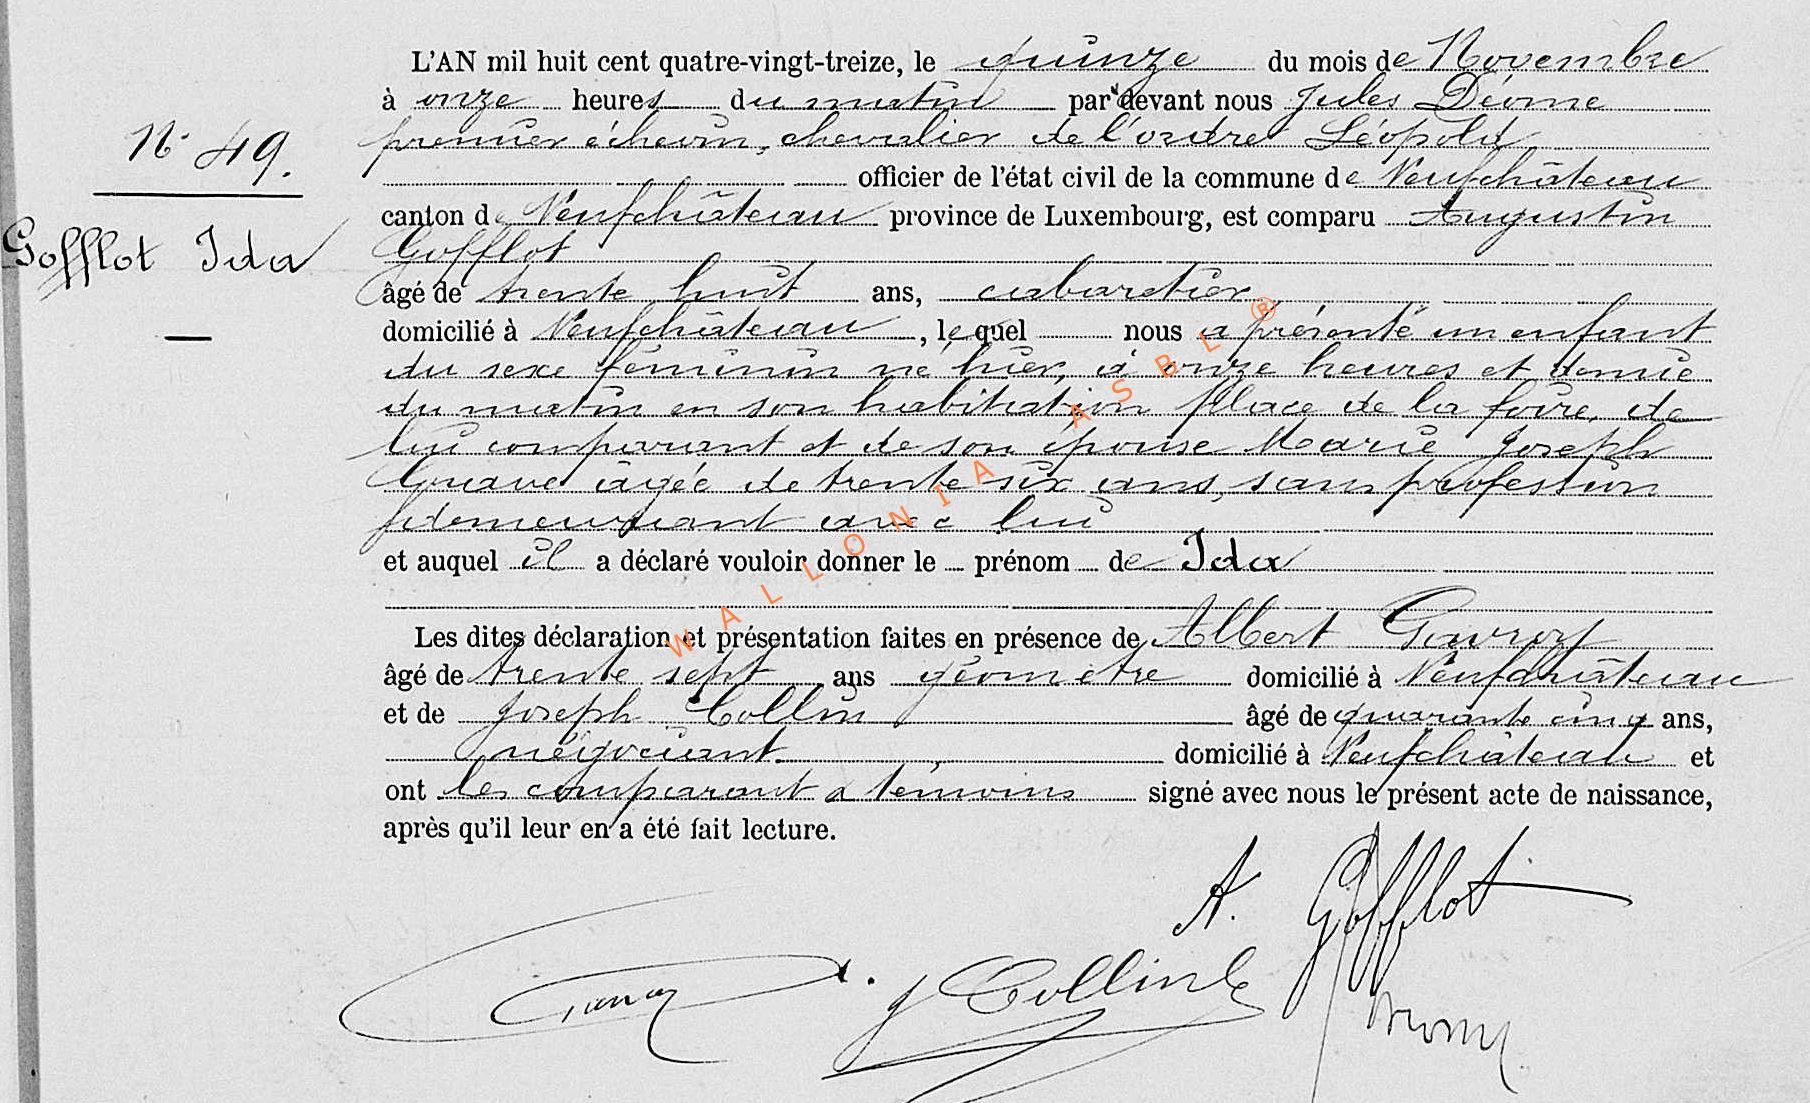 L'AN mil huit cent quatre-vingt-treize, le quinze du mois de Novembre
à onze heures du matin par devant nous Jules Déome
premier échevin, chevalier de l'ordre Léopold
N° 49.
officier de l'état civil de la commune de Neufchâteau
canton de Neufchâteau province de Luxembourg, est comparu Augustin
Gofflot Ida
Gofflot
âgé de trente huit ans, cabaretier
domicilié à Neufchâteau, lequel nous a présenté un enfant
du sexe féminin né hier, à onze heures et demie
du matin en son habitation place de la foire, de
lui comparant et de son épouse Marie Joseph
âgée de trente six ans, sans profession
demeurant avec lui
et auquel il a déclaré vouloir donner le prénom de Ida
Les dites déclaration et présentation faites en présence de Albert Gavroy
âgé de trente sept ans géomètre domicilié à Neufchâteau
et de Joseph Collin âgé de quarante cinq ans,
négociant domicilié à Neufchâteau et
ont les comparant & témoins signé avec nous le présent acte de naissance,
après qu'il leur en a été fait lecture.
A. Gofflot
J Collin
WALLONIA ASBL ®